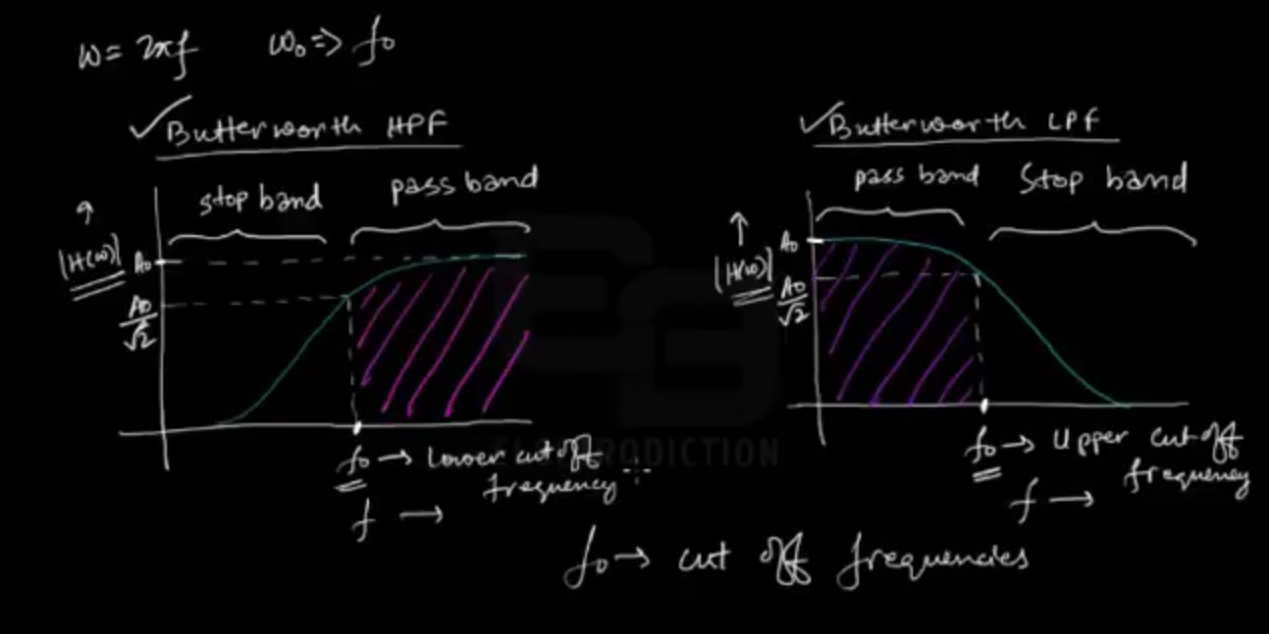 ω = 2πf ω₀ ⇒ f₀
✓ Butterworth HPF
stop band pass band
|H(ω)|
A₀
A₀/√2
f₀ → Lower cut off frequency
f →
✓ Butterworth LPF
pass band Stop band
|H(ω)|
A₀
A₀/√2
f₀ → Upper cut off frequency
f →
f₀ → cut off frequencies